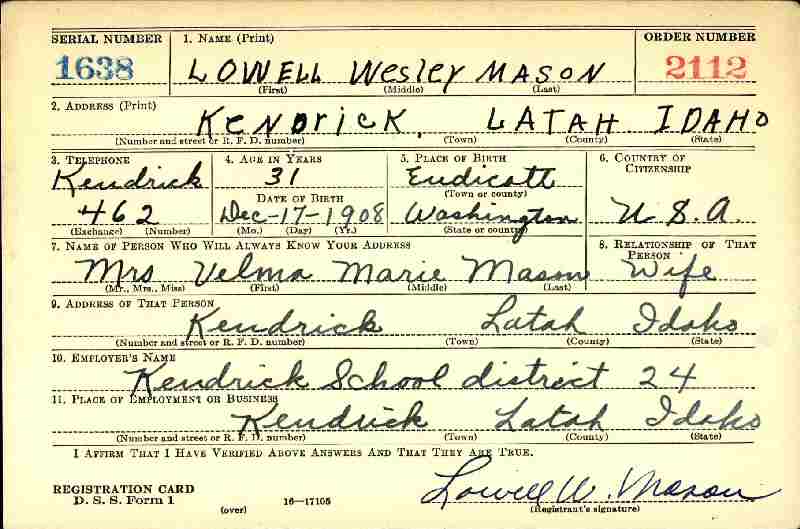 SERIAL NUMBER 1. NAME (Print) ORDER NUMBER
1638 LOWELL Wesley MASON 2112
(First) (Middle) (Last)
2. ADDRESS (Print)
KENDRICK, LATAH IDAHO
(Number and street or R. F. D. number) (Town) (County) (State)
3. TELEPHONE 4. AGE IN YEARS 5. PLACE OF BIRTH 6. COUNTRY OF CITIZENSHIP
Kendrick 31 Endicott
(Town or county)
DATE OF BIRTH
462 Dec-17-1908 Washington U.S.A.
(Exchange) (Number) (Mo.) (Day) (Yr.) (State or country)
7. NAME OF PERSON WHO WILL ALWAYS KNOW YOUR ADDRESS 8. RELATIONSHIP OF THAT PERSON
Mrs Velma Marie Mason Wife
(Mr., Mrs., Miss) (First) (Middle) (Last)
9. ADDRESS OF THAT PERSON
Kendrick Latah Idaho
(Number and street or R. F. D. number) (Town) (County) (State)
10. EMPLOYER'S NAME
Kendrick School district 24
11. PLACE OF EMPLOYMENT OR BUSINESS
Kendrick Latah Idaho
(Number and street or R. F. D. number) (Town) (County) (State)
I AFFIRM THAT I HAVE VERIFIED ABOVE ANSWERS AND THAT THEY ARE TRUE.
Lowell W. Mason
REGISTRATION CARD
D. S. S. Form 1 (over) 16—17105 (Registrant's signature)